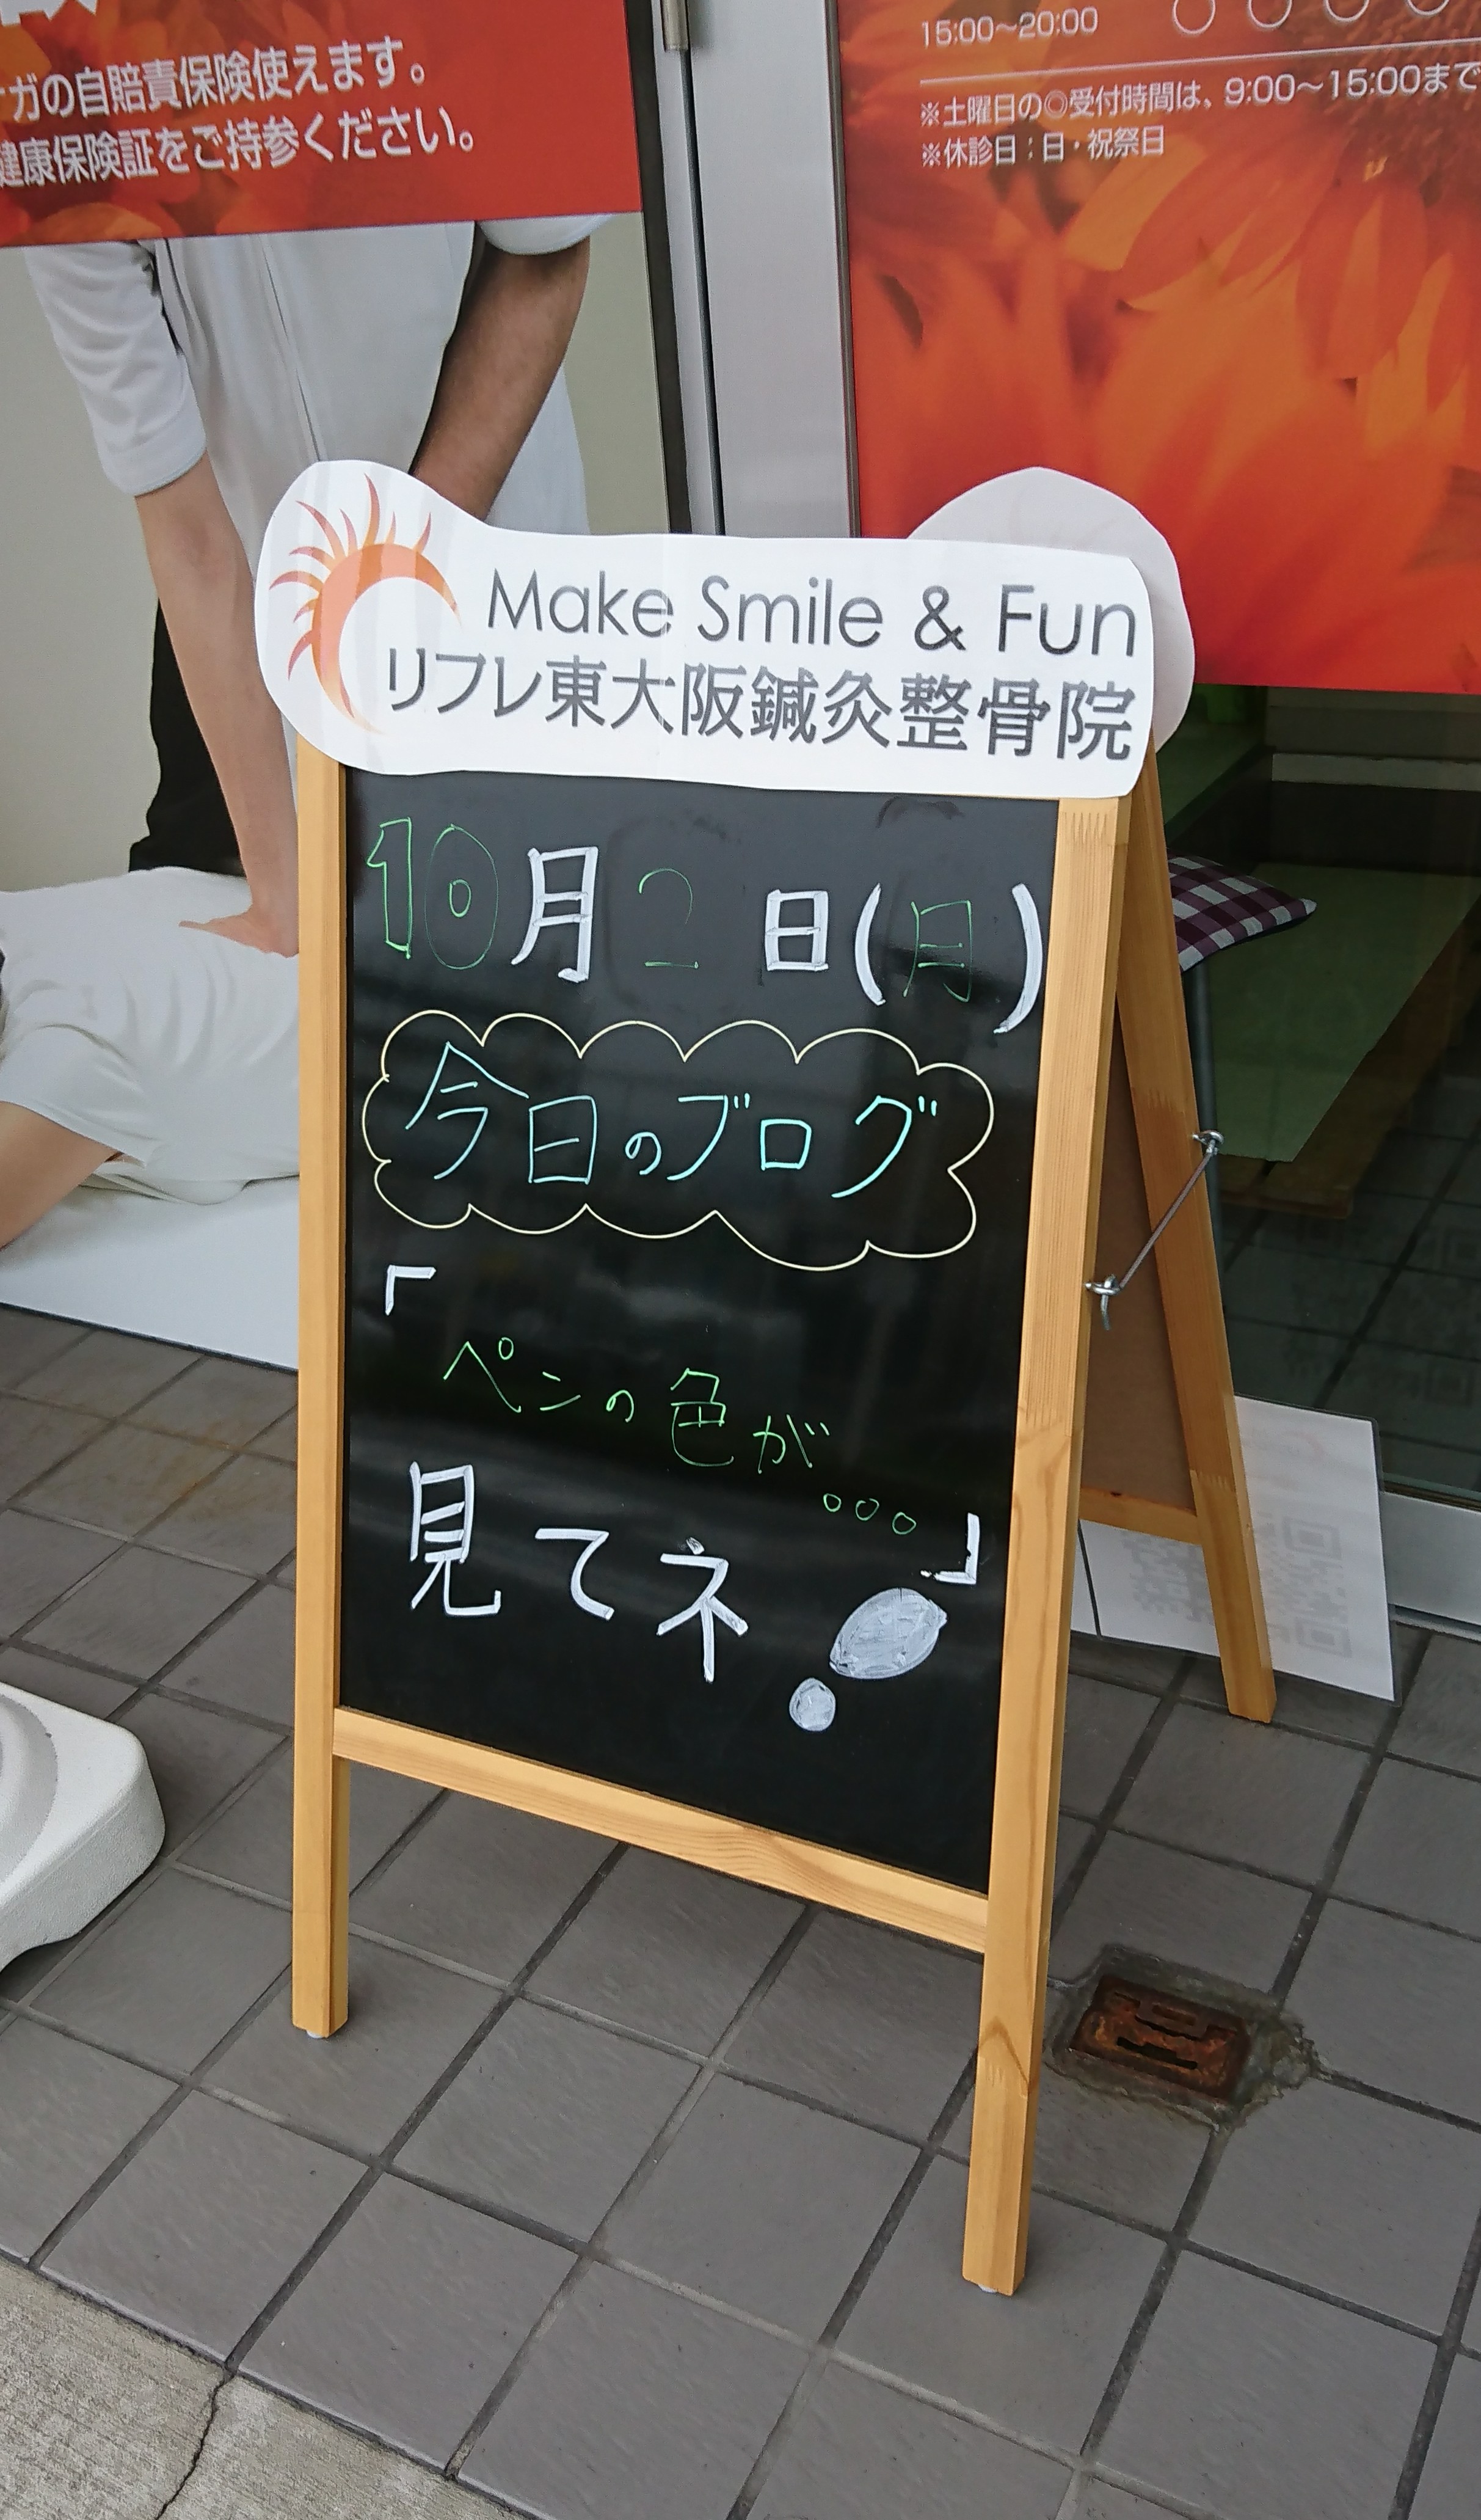 ガの自賠責保険使えます。
健康保険証をご持参ください。
15:00〜20:00 ○ ○ ○ ○
※土曜日の◎受付時間は、9:00〜15:00まで
※休診日：日・祝祭日
Make Smile & Fun
リフレ東大阪鍼灸整骨院
10月2日(月)
今日のブログ
「
ペンの色が
。。。」
見てネ!